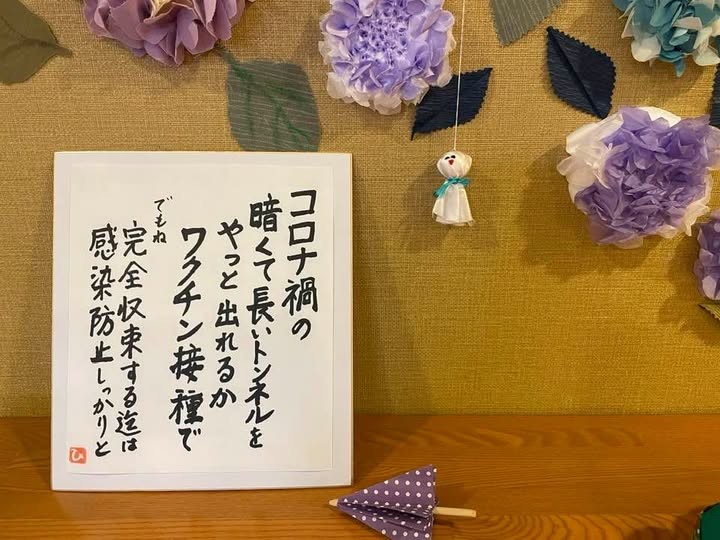 コロナ禍の
暗くて長いトンネルを
やっと出れるか
ワクチン接種で
でもね
完全収束する迄は
感染防止しっかりと
ひ